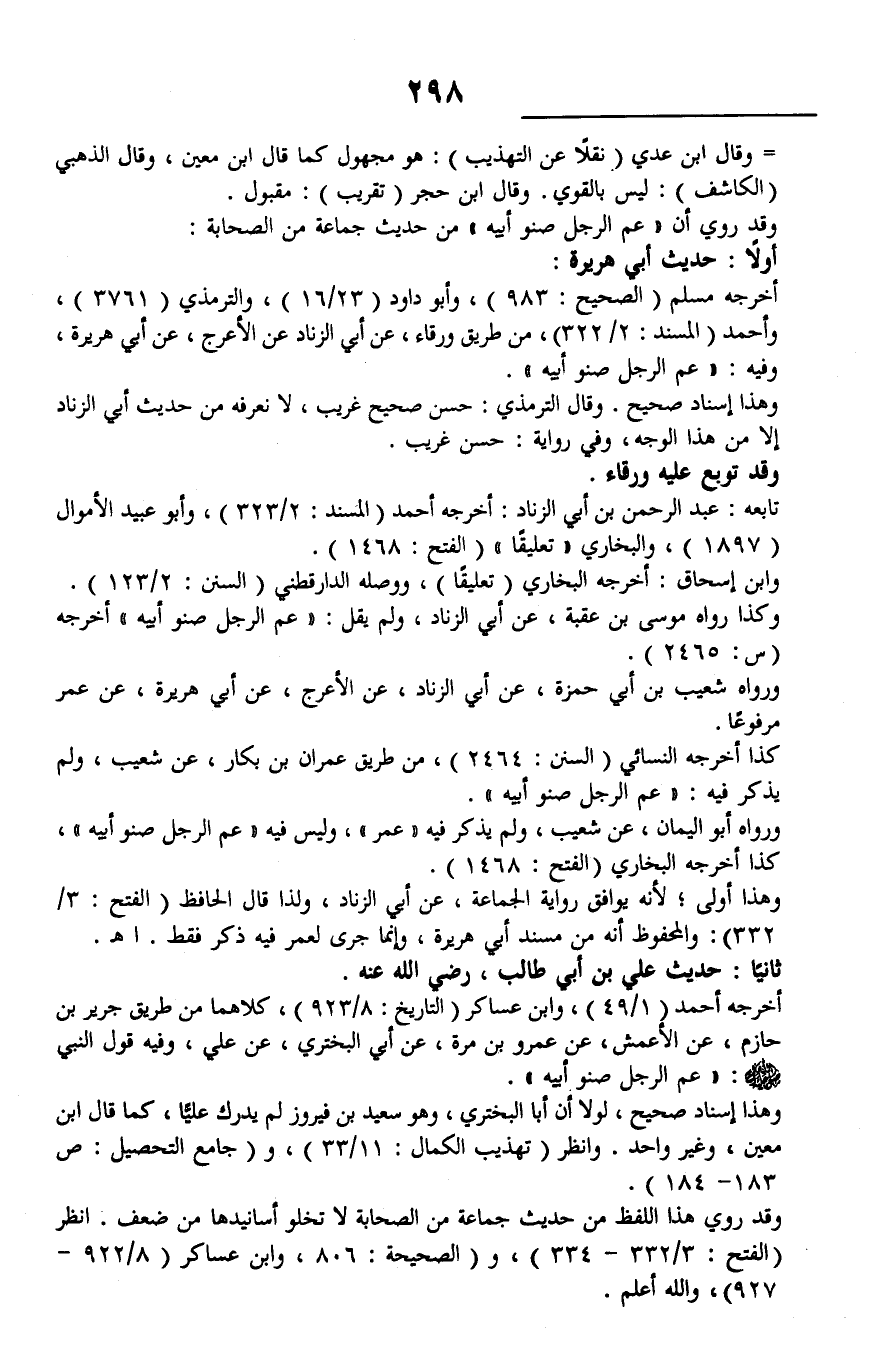 ٢٩٨
= وقال ابن عدي ( نقلًا عن التهذيب ) : هو مجهول كما قال ابن معين ، وقال الذهبي
( الكاشف ) : ليس بالقوي . وقال ابن حجر ( تقريب ) : مقبول .
وقد روي أن « عم الرجل صنو أبيه » من حديث جماعة من الصحابة :
أولًا : حديث أبي هريرة :
أخرجه مسلم ( الصحيح : ٩٨٣ ) ، وأبو داود ( ١٦/٢٣ ) ، والترمذي ( ٣٧٦١ ) ،
وأحمد ( المسند : ٣٢٢/٢) ، من طريق ورقاء ، عن أبي الزناد عن الأعرج ، عن أبي هريرة ،
وفيه : « عم الرجل صنو أبيه » .
وهذا إسناد صحيح . وقال الترمذي : حسن صحيح غريب ، لا نعرفه من حديث أبي الزناد
إلا من هذا الوجه ، وفي رواية : حسن غريب .
وقد توبع عليه ورقاء .
تابعه : عبد الرحمن بن أبي الزناد : أخرجه أحمد ( المسند : ٣٢٣/٢ ) ، وأبو عبيد الأموال
( ١٨٩٧ ) ، والبخاري « تعليقًا » ( الفتح : ١٤٦٨ ) .
وابن إسحاق : أخرجه البخاري ( تعليقًا ) ، ووصله الدارقطني ( السنن : ١٢٣/٢ ) .
وكذا رواه موسى بن عقبة ، عن أبي الزناد ، ولم يقل : « عم الرجل صنو أبيه » أخرجه
( س : ٢٤٦٥ ) .
ورواه شعيب بن أبي حمزة ، عن أبي الزناد ، عن الأعرج ، عن أبي هريرة ، عن عمر
مرفوعًا .
كذا أخرجه النسائي ( السنن : ٢٤٦٤ ) ، من طريق عمران بن بكار ، عن شعيب ، ولم
يذكر فيه : « عم الرجل صنو أبيه » .
ورواه أبو اليمان ، عن شعيب ، ولم يذكر فيه « عمر » ، وليس فيه « عم الرجل صنو أبيه » ،
كذا أخرجه البخاري (الفتح : ١٤٦٨ ) .
وهذا أولى ؛ لأنه يوافق رواية الجماعة ، عن أبي الزناد ، ولذا قال الحافظ ( الفتح : ٣/
٣٣٢) : والمحفوظ أنه من مسند أبي هريرة ، وإنما جرى لعمر فيه ذكر فقط . ا هـ .
ثانيًا : حديث علي بن أبي طالب ، رضي الله عنه .
أخرجه أحمد ( ٤٩/١ ) ، وابن عساكر ( التاريخ : ٩٢٣/٨ ) ، كلاهما من طريق جرير بن
حازم ، عن الأعمش ، عن عمرو بن مرة ، عن أبي البختري ، عن علي ، وفيه قول النبي
ﷺ : « عم الرجل صنو أبيه » .
وهذا إسناد صحيح ، لولا أن أبا البختري ، وهو سعيد بن فيروز لم يدرك عليًّا ، كما قال ابن
معين ، وغير واحد . وانظر ( تهذيب الكمال : ٣٣/١١ ) ، و ( جامع التحصيل : ص
١٨٣- ١٨٤ ) .
وقد روي هذا اللفظ من حديث جماعة من الصحابة لا تخلو أسانيدها من ضعف . انظر
(الفتح : ٣٣٢/٣ - ٣٣٤ ) ، و ( الصحيحة : ٨٠٦ ، وابن عساكر ( ٩٢٢/٨ -
٩٢٧) ، والله أعلم .